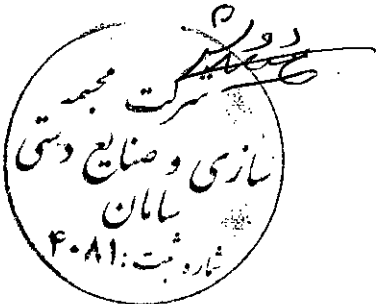 شرکت مجسمه
سازی و صنایع دستی
سامان
شماره ثبت: ۴۰۸۱